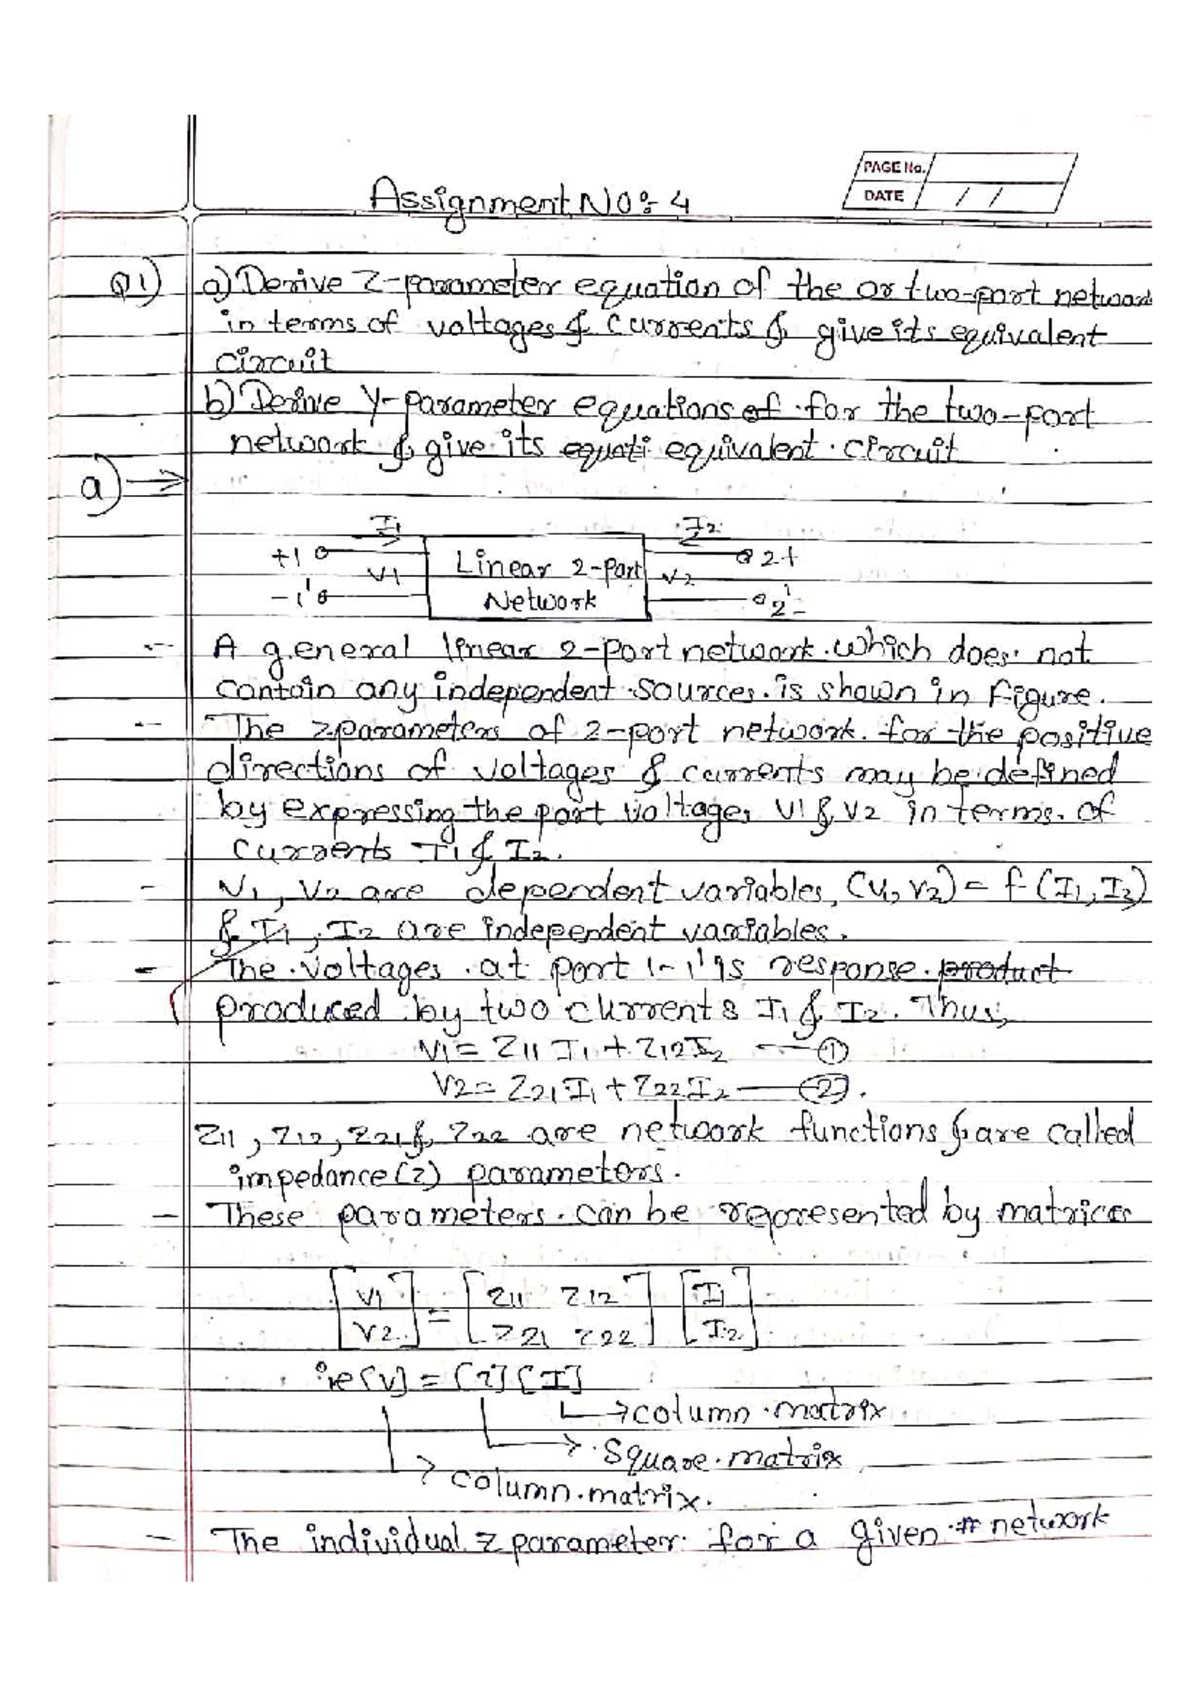 PAGE No.
DATE / /
Assignment No:- 4
Q1) a) Derive Z-parameter equation of the or two-port network
in terms of voltages & currents & give its equivalent
circuit
b) Derive Y-parameter equations of for the two-port
network & give its equati equivalent circuit
a) →
I1 I2
+1 Linear 2-Port 2+
V1 V2
-1' Network 2'-
- A general linear 2-port network which does not
contain any independent sources is shown in figure.
- The z parameters of 2-port network for the positive
directions of voltages & currents may be defined
by expressing the port voltages V1 & V2 in terms of
currents I1 & I2.
- V1, V2 are dependent variables, (V1, V2) = f (I1, I2)
& I1, I2 are independent variables.
- The voltages at port 1-1' is response product
produced by two currents I1 & I2. Thus,
V1 = Z11 I1 + Z12 I2 — (1)
V2 = Z21 I1 + Z22 I2 — (2).
Z11, Z12, Z21 & Z22 are network functions & are called
impedance (z) parametors.
- These parameters can be represented by matrices
[V1 V2] = [Z11 Z12 Z21 Z22] [I1 I2]
ie [V] = [Z] [I]
→ column matrix
→ Square matrix
→ column matrix.
- The individual z parameter for a given # network